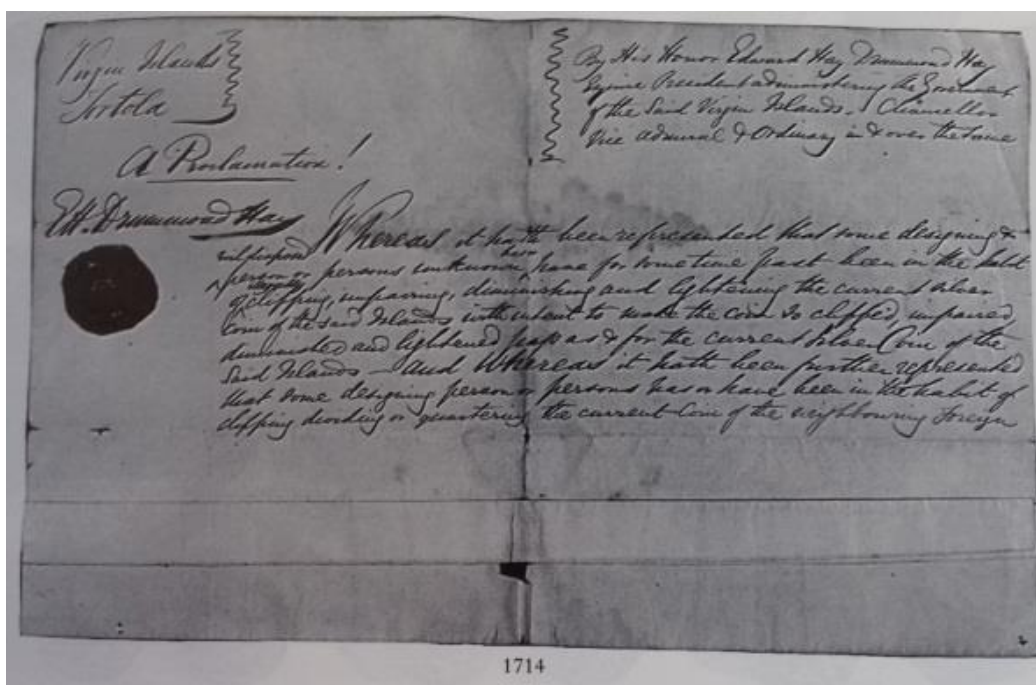 Virgin Islands
Tortola
By His Honor Edward Hay Drummond Hay
Esquire President administering the Government
of the Said Virgin Islands. Chancellor
Vice Admiral & Ordinary in & over the Same
A Proclamation!
EH. Drummond Hay
Whereas it hath been represented that some designing &
evil disposed
person or persons unknown, have for some time past been in the habit
of clipping, impairing, diminishing and lightening the current silver
Coin of the said Islands with intent to make the coin so clipped, impaired
diminished and lightened pass as & for the current Silver Coin of the
Said Islands – and Whereas it hath been further represented
that some designing person or persons has or have been in the habit of
clipping dividing or quartering the current Coin of the neighbouring foreign
1714